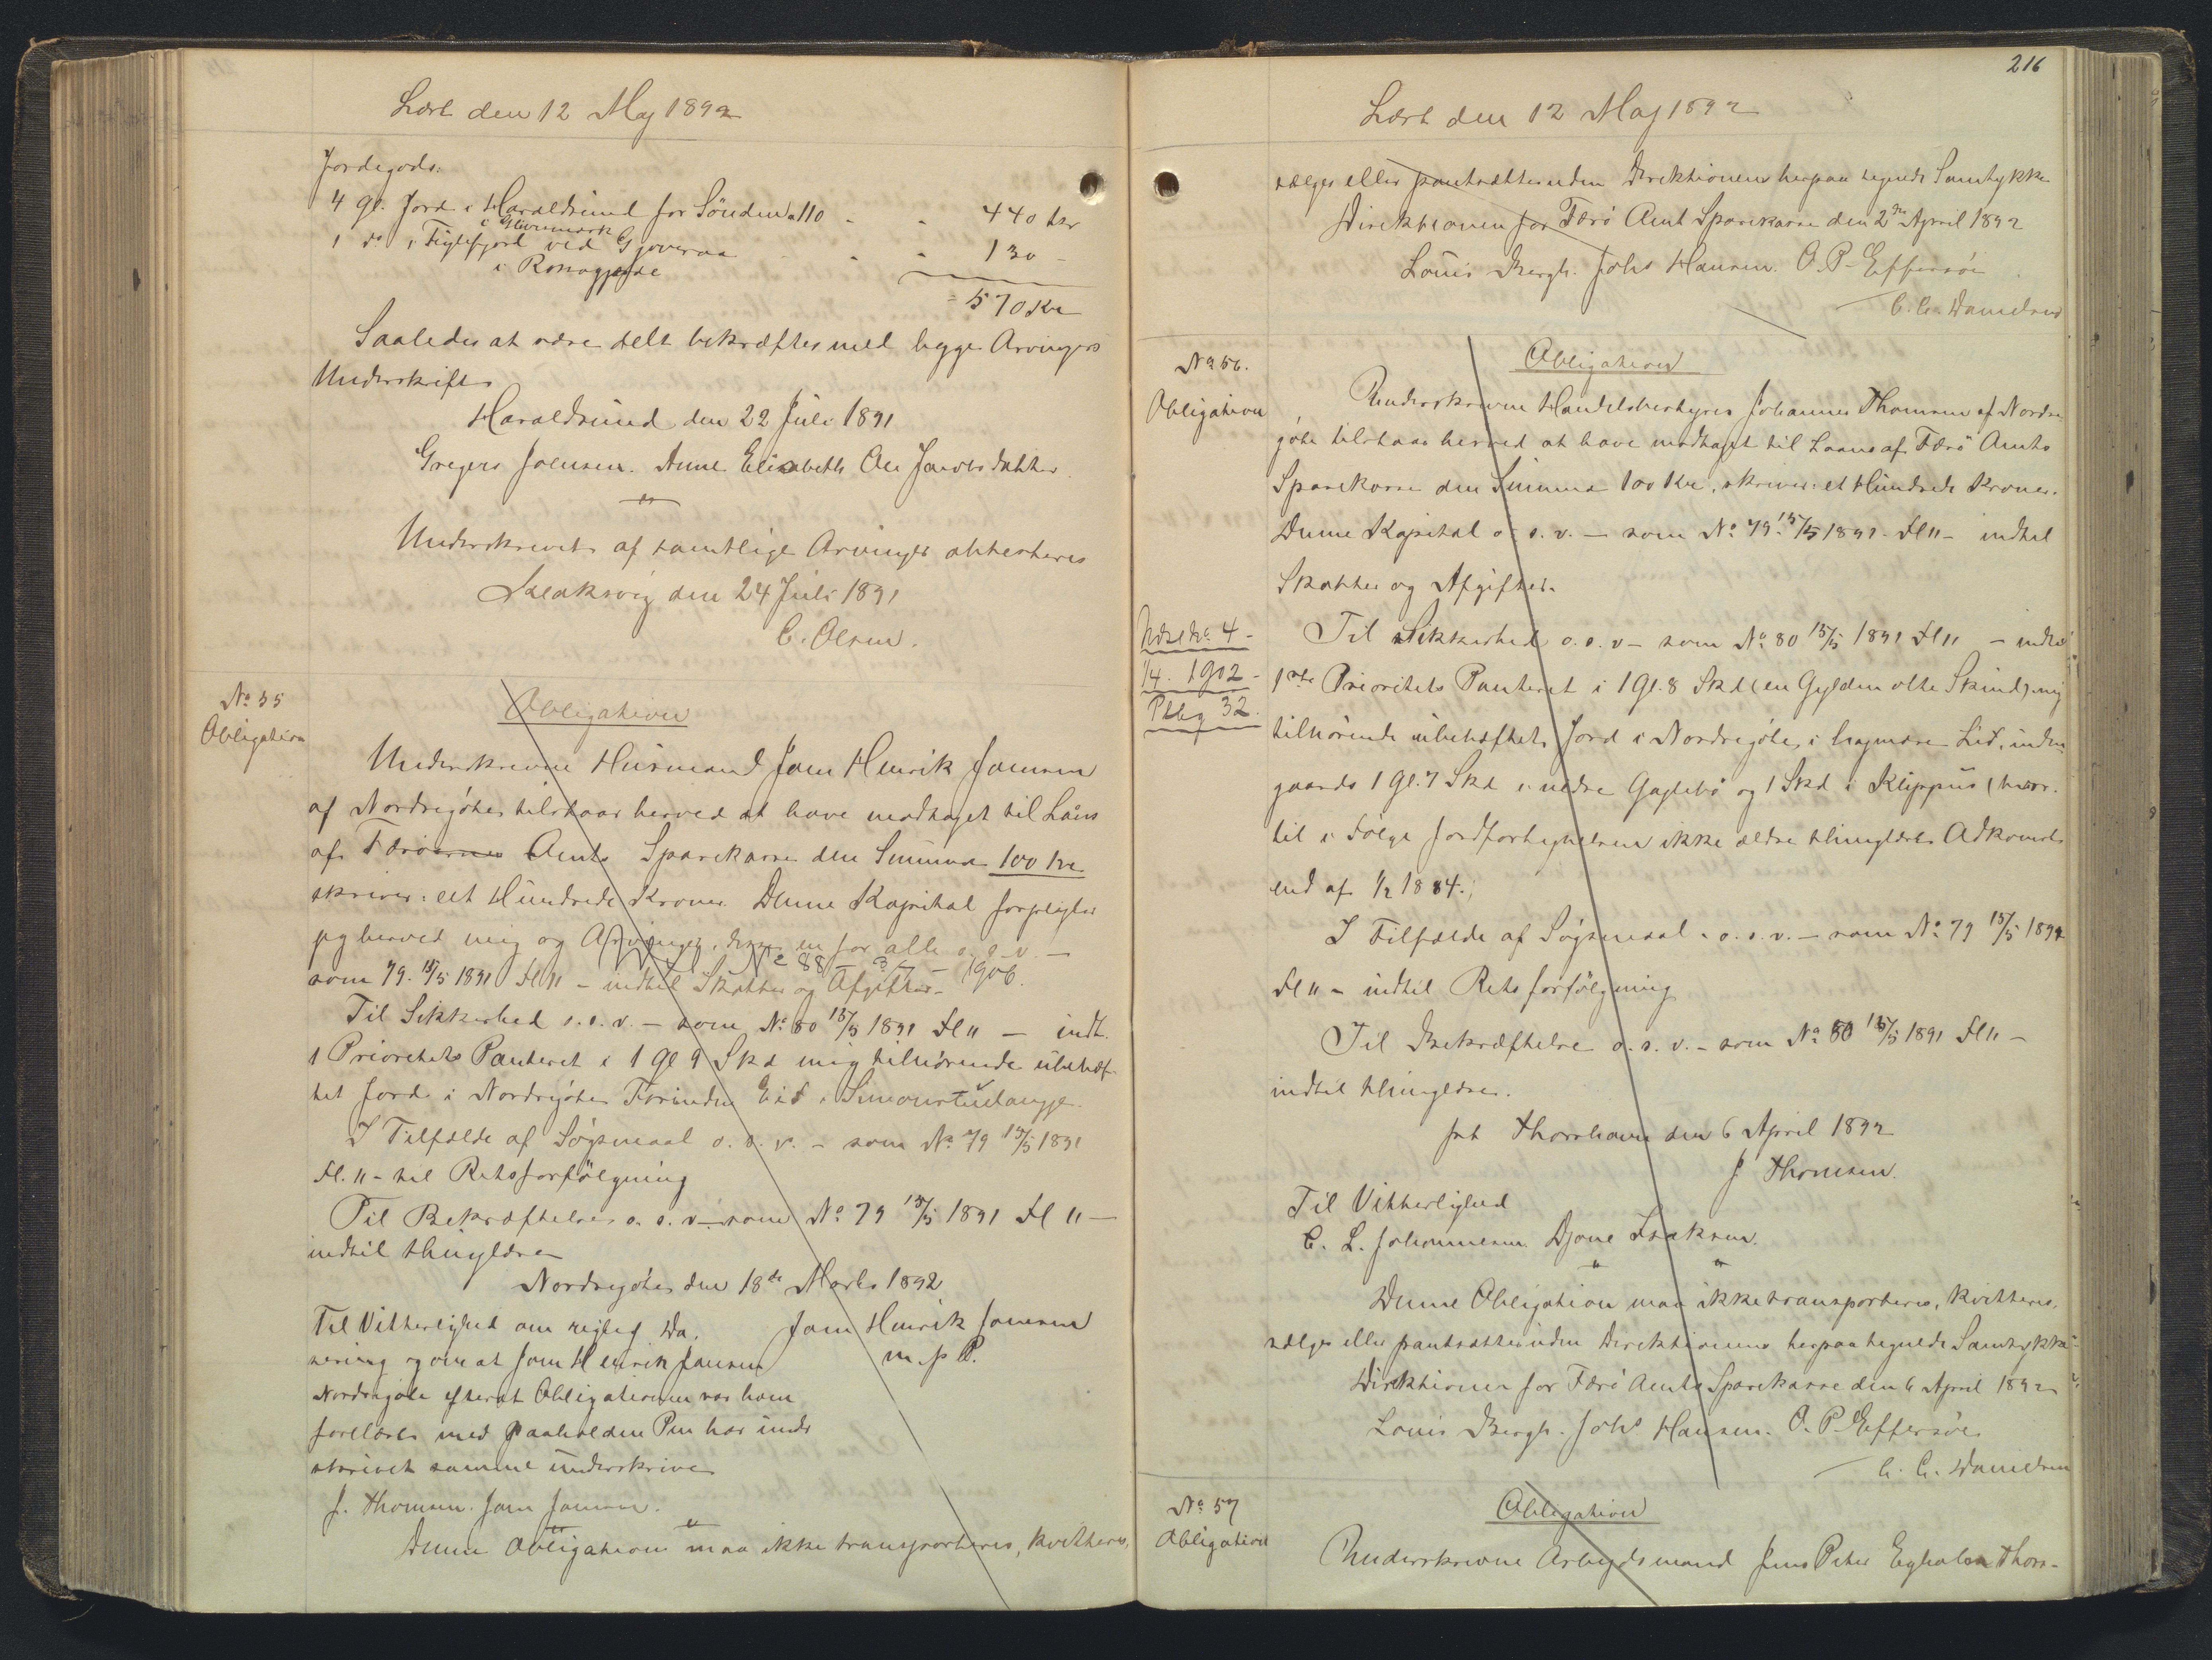 Læst den 12 Maj 1892
Jordegods:
4 Gl. Jord i Haraldsund for Sönden a 110 - - 440 Kr
i Givremark
1 do i Fuglefjord ved Gjoveraa - - 130 -
i Ronagjerde
= 570 Kr
Saaledes at være delt bekræftes med begge Arvingers
Underskift
Haraldsund den 22 Juli 1891
Gregers Joensen. Anne Elisabeth Ole Jacobsdatter
Underskrevet af samtlige Arvinger attesteres
Klaksvig den 24 Juli 1891
C. Olsen.
No 55
Obligation
Obligation
Underskrevne Husmand Joen Henrik Joensen
af Nordregöte tilstaar herved at have modtaget til Laans
af Færöernes Amts Sparekasse den Summa 100 Kr
skriver: eet Hundrede Kroner. Denne Kapital forpligter
jeg herved mig og Arvinger, en for alle o. s. v. —
No 88 - 3/7 - 1906.
som 79. 15/5 1891 Fl " - indtil Skatter og Afgifter -
Til Sikkerhed o. s. v. — som No 80 15/5 1891 Fl " — indt.
1 Prioritets Panteret i 1 Gl 9 Skd mig tilhörende ubehæf-
tet Jord i Nordregöte Forinden Eid i Simonstulangje.
I Tilfælde af Sögsmaal o. s. v. - som No 79 15/5 1891
Fl. " - til Retsforfölgning
Til Bekræftelse o. s. v. — som No 79 15/5 1891 Fl " —
indtil thinglæse
Nordregöte den 18de Marts 1892
Til Vitterlighed om rigtig Da- Joen Henrik Joensen
tering og om at Joen Henrik Joensen m. p. P.
Nordregöte efterat Obligationen var ham
forelæst med paaholden Pen har under
skrevet samme underskrive
J. Thomsen. Joen Joensen.
Denne Obligation maa ikke transporteres, kvitteres,
216
Læst den 12 Maj 1892
sælges eller pantsættes uden Direktionens herpaa tegnede Samtykke
Direktionen for Færö Amts Sparekasse den 2den April 1892
Louis Bergh. Johs Hansen. O. P. Effersöe
C. C. Danielsen
No 56.
Obligation
Obligation
Underskrevne Handelsbestyrer Johannes Thomsen af Nordre
göte tilstaar herved at have modtaget til Laans af Færö Amts
Sparekasse den Summa 100 Kr, skriver: et Hundrede Kroner.
Denne Kapital o. s. v. — som No 79. 15/5 1891. Fl " - indtil
Skatter og Afgifter.
No 4 -
1/4. 1902 -
Pbg 32.
Til Sikkerhed o. s. v — som No 80 15/5 1891 Fl " — indtil
1ste Prioritets Panteret i 1 Gl. 8 Skd (en Gylden otte Skind) mig
tilhörende ubehæftet Jord i Nordregöte, i Lid, inden
gaards 1 Gl. 7 Skd i nedre Gagtebö og 1 Skd i Klippus (hvor-
til i Fölge Jordfortegnelsen ikke ældre thinglæst Adkomst
end af 1/2 1884.)
I Tilfælde af Sögsmaal o. s. v. — som No 79 15/5 1891
Fl " - indtil Retsforfölgning
Til Bekræftelse o. s. v. - som No 80 15/5 1891 Fl " —
indtil thinglæse.
pt Thorshavn den 6 April 1892
J Thomsen.
Til Vitterlighed
C. L. Johannesen Djone Isaksen.
Denne Obligation maa ikke transporteres, kvitteres,
sælges eller pantsættes uden Direktionens herpaa tegnede Samtykke
Direktionen for Færö Amts Sparekasse den 6 April 1892
Louis Bergh. Johs Hansen. O. P. Effersöe
C. C. Danielsen
No 57
Obligation
Obligation
Underskrevne Arbejdsmand Jens Peter Thors-